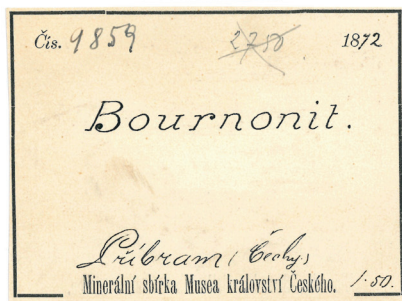 Čís. 9859 2750 1872
Bournonit.
Příbram (Čechy)
Minerální sbírka Musea království Českého. 1·50.